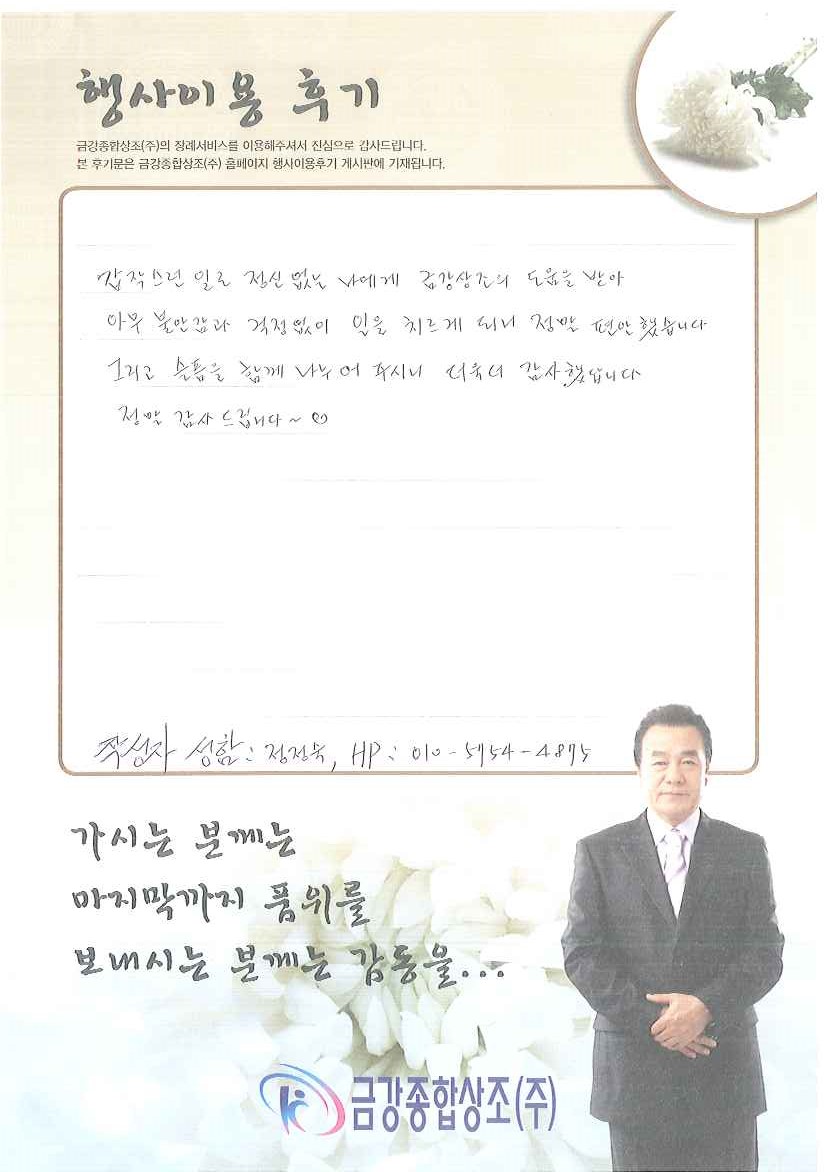 행사이용 후기
금강종합상조(주)의 장례서비스를 이용해주셔서 진심으로 감사드립니다.
본 후기문은 금강종합상조(주) 홈페이지 행사이용후기 게시판에 기재됩니다.
갑작스런 일로 정신없는 나에게 금강상조의 도움을 받아
아무 불안감과 걱정없이 일을 치르게 되니 정말 편안했습니다
그리고 슬픔을 함께 나누어 주시니 더욱더 감사했습니다
정말 감사드립니다~♡
작성자 성함: 정정숙, HP: 010-5954-4895
가시는 분께는
마지막까지 품위를
보내시는 분께는 감동을...
금강종합상조(주)